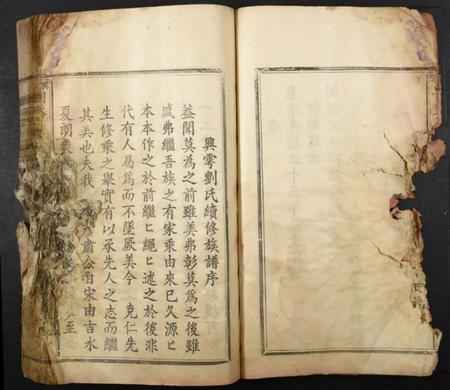 興雩劉氏續修族譜序
蓋聞莫為之前雖美弗彰莫為之後雖
盛弗繼吾族之有家乘由來已久源ヒ
本本作之於前繼ヒ繩ヒ述之於後洪
代有人曷為而不墜厥美今 克仁先
生修乘之舉實有以承先人之志而繼
其美也夫我 彥肅公自宋由吉水
夏朗 至